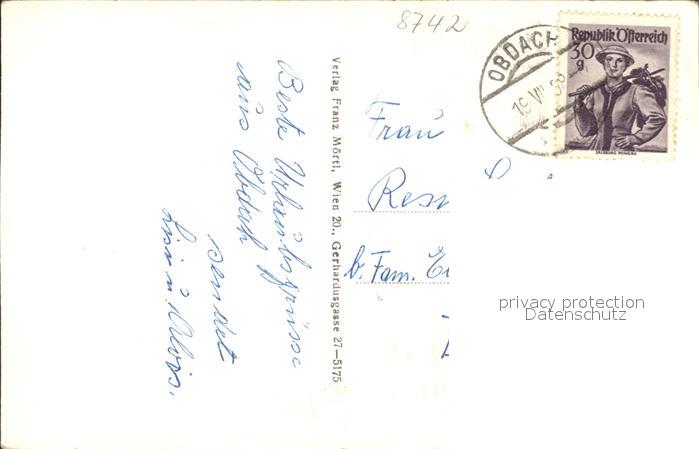 8742
Beste Urlaubsgrüsse
aus Obdach
sendet
Lisi u. Alois.
Verlag Franz Mörtl, Wien 20., Gerhardusgasse 27—5175
OBDACH
19. VII
Republik Österreich
30
g
SALZBURG PONGAU
Frau
b. Fam.
privacy protection
Datenschutz